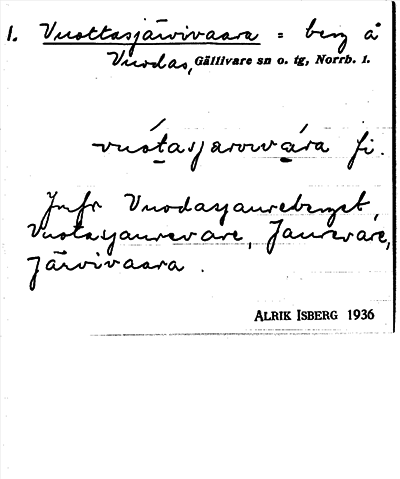 1. Vuottasjärvivaara = berg å
Vuodas, Gällivare sn o. tg, Norrb. l.
vuớtasjarovvára fi.
Jmfr Vuodasjaureberget,
Vuotasjaurevare, Jaurevare,
Järvivaara.
ALRIK ISBERG 1936